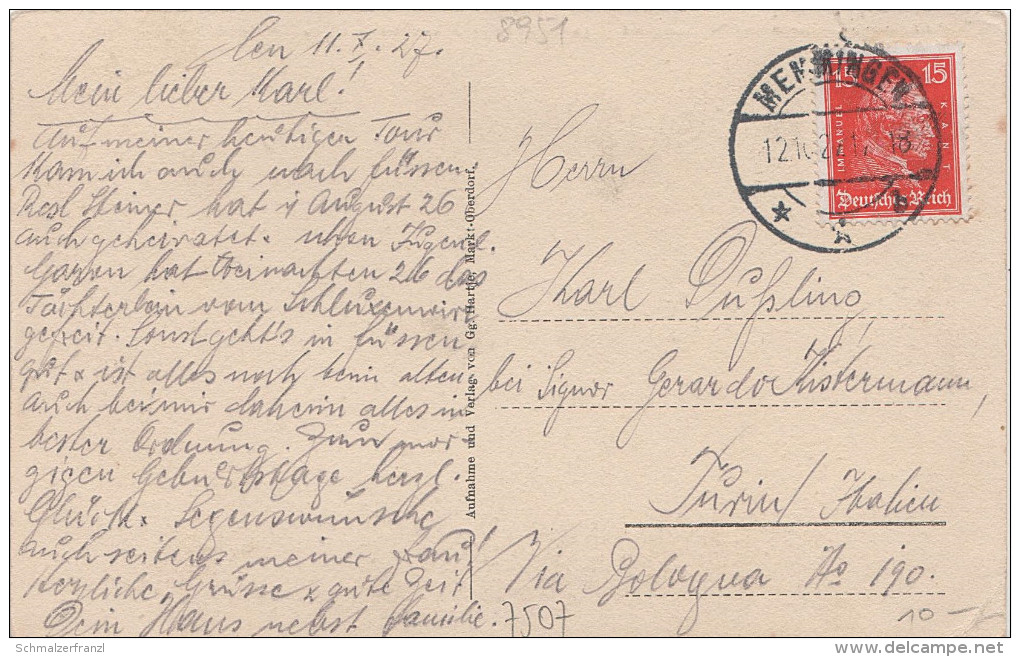 8951
den 11.X.27.
Mein lieber Karl!
Auf meiner heutigen Tour
kam ich auch nach Füssen
Resl Steiner hat i August 26
auch geheiratet. Uhren Jugend.
hat Weinachten 26 das
Töchterlein vom Schluxenwirt
gefreit. Sonst geht's in Füssen
gut & ist alles noch beim alten
auch bei mir daheim alles in
bester Ordnung. Zum mor-
gigen Geburtstage herzl.
Glück & Segenswünsche
auch seitens meiner Frau!
herzliche Grüsse & gute Zeit
Dein Hans nebst Familie.
7507
Aufnahme und Verlag von Gg. Hartje, Markt-Oberdorf.
MEMMINGEN
12.10.2 17-18
15 15
IMMANUEL KANT
Deutsches Reich
Herrn
Karl Dußling
bei Signor Gerardo Kistermann,
Turin/Italien
Via Bologna No 190.
10-
Schmalzerfranzl
www.delcampe.net